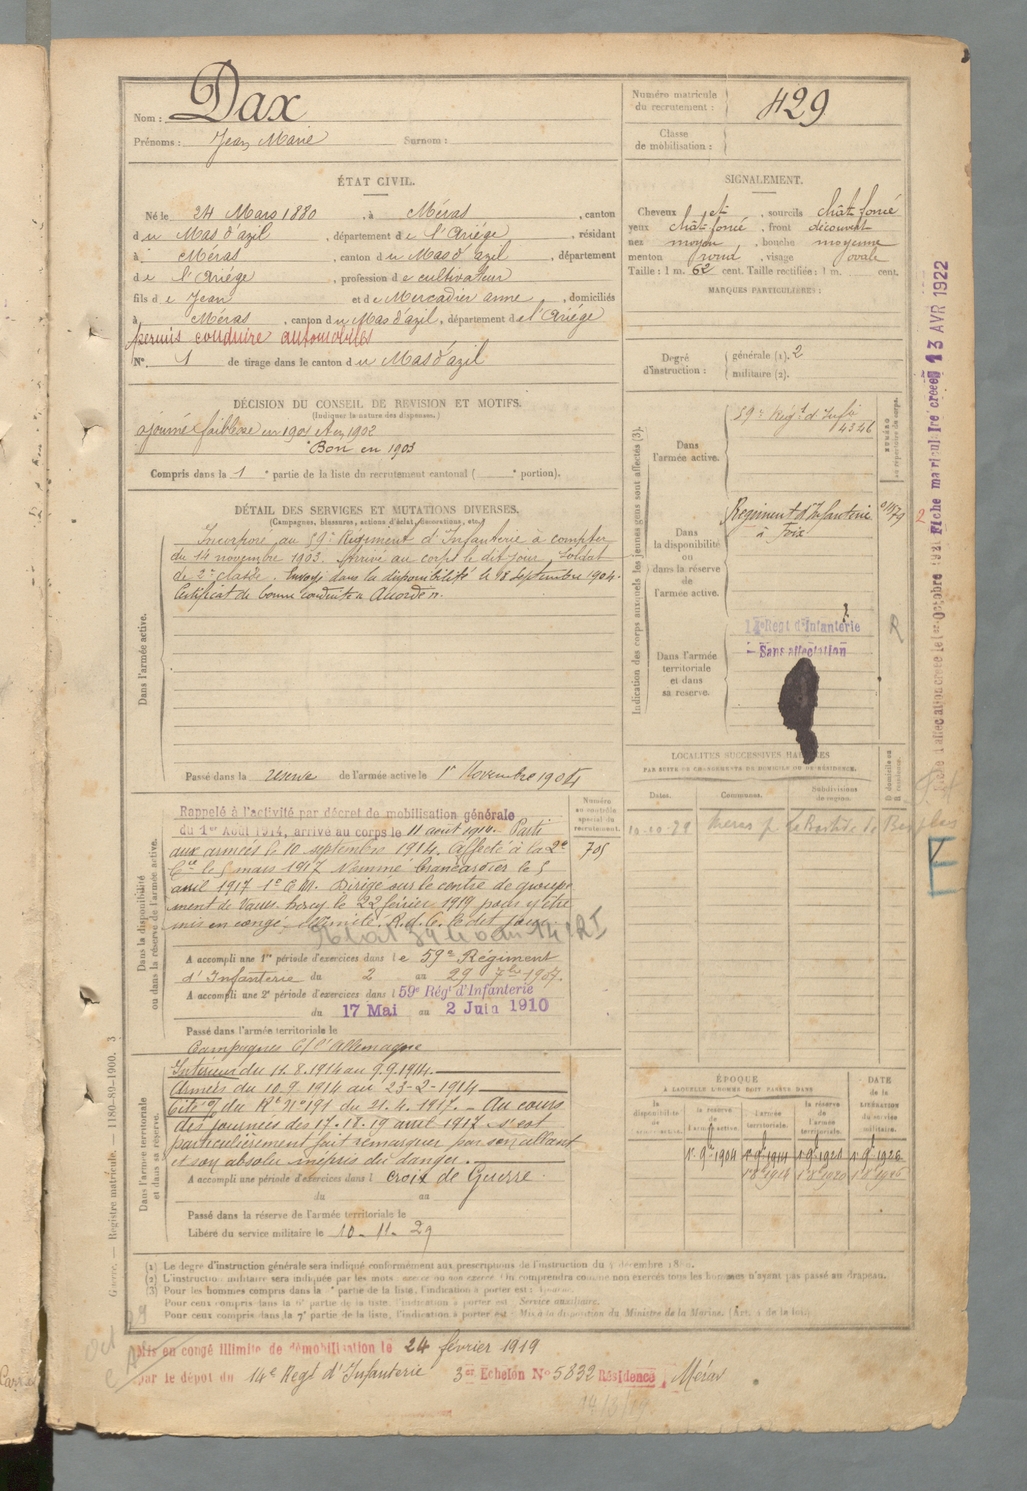 Nom : Dax
Prénoms : Jean Marie Surnom :
Numéro matricule du recrutement : 429
Classe de mobilisation :
ÉTAT CIVIL.
Né le 24 Mars 1880, à Méras, canton
du Mas d'azil, département de l'Ariége, résidant
à Méras, canton du Mas d'azil, département
de l'Ariége, profession de cultivateur
fils de Jean et de Mercadier anne, domiciliés
à Méras, canton du Mas d'azil, département de l'Ariége
permis conduire automobiles
N° 1 de tirage dans le canton du Mas d'azil
SIGNALEMENT.
Cheveux et sourcils chât foncé
yeux chât foncé, front découvert
nez moyen, bouche moyenne
menton rond, visage ovale
Taille : 1 m. 62 cent. Taille rectifiée : 1 m. cent.
MARQUES PARTICULIÈRES :
Degré d'instruction : générale (1). 2
militaire (2).
DÉCISION DU CONSEIL DE REVISION ET MOTIFS.
(Indiquer la nature des dispenses.)
ajourné faiblesse en 1901 et en 1902
Bon en 1903
Compris dans la 1e partie de la liste du recrutement cantonal ( e portion).
DÉTAIL DES SERVICES ET MUTATIONS DIVERSES.
(Campagnes, blessures, actions d'éclat, décorations, etc.)
Dans l'armée active.
Incorporé au 59e Régiment d'Infanterie à compter
du 14 novembre 1903. Arrivé au corps le dit jour, Soldat
de 2e classe. Envoyé dans la disponibilité le 18 septembre 1904.
Certificat de bonne conduite Accordé
Passé dans la réserve de l'armée active le 1er Novembre 1904
Indication des corps auxquels les jeunes gens sont affectés (3).
NUMÉRO au répertoire du corps.
Dans l'armée active.
59e Régt d'Infie
4346
Dans la disponibilité ou dans la réserve de l'armée active.
Régiment d'Infanterie
à Foix
Dans l'armée territoriale et dans sa réserve.
Regt d'Infanterie
Sans affectation
R
Fiche matricul 1re créée 13 AVR 1922
LOCALITÉS SUCCESSIVES HABITÉES
PAR SUITE DE CHANGEMENTS DE DOMICILE OU DE RÉSIDENCE.
Dates. Communes. Subdivisions de région. D domicile ou R résidence.
Dans la disponibilité ou dans la réserve de l'armée active.
Numéro au contrôle spécial du recrutement.
705
Rappelé à l'activité par décret de mobilisation générale
du 1er Août 1914, arrivé au corps le 11 aout 1914. Parti
aux armées le 10 septembre 1914. Affecté à la 2e
Cie le 5 mars 1917 Nommé brancardier le 5
avril 1917. Dirigé sur le centre de groupe
ment de le 22 février 1919 pour y être
mis en congé illimité. le dit jour.
A accompli une 1re période d'exercices dans le 59e Régiment
d'Infanterie du 2 au 29 7bre 1907.
A accompli une 2e période d'exercices dans l 59e Régt d'Infanterie
du 17 Mai au 2 Juin 1910
Passé dans l'armée territoriale le
Campagnes C/ l'Allemagne
Dans l'armée territoriale et dans sa réserve.
Intérieur du 11.8.1914 au 9.9.1914.
Armées du 10.9.1914 au 23-2-1914
Cité du Rt N° 191 du 21.4.1917. - Au cours
des journées des 17.18.19 avril 1917 s'est
particulièrement fait remarquer par son allant
et son absolu mépris du danger.
A accompli une période d'exercices dans l croix de Guerre
du au
Passé dans la réserve de l'armée territoriale le
Libéré du service militaire le 10-11-29
ÉPOQUE
À LAQUELLE L'HOMME DOIT PASSER DANS
la disponibilité de l'armée active. la réserve de l'armée active. l'armée territoriale. la réserve de l'armée territoriale.
DATE de la LIBÉRATION du service militaire.
(1) Le degré d'instruction générale sera indiqué conformément aux prescriptions de l'instruction du
(2) L'instruction militaire sera indiquée par les mots : exercé ou non exercé. On comprendra comme non exercés tous les hommes n'ayant pas passé au drapeau.
(3) Pour les hommes compris dans la partie de la liste, l'indication à porter est :
Pour ceux compris dans la 6e partie de la liste, l'indication à porter est : Service auxiliaire.
Pour ceux compris dans la 7e partie de la liste, l'indication à porter est : Mis à la disposition du Ministre de la Marine.
Guerre. — Registre matricule. — 1180-89-1900. 3
Mis en congé illimité de démobilisation le 24 février 1919
par le dépôt du 14e Regt d'Infanterie 3er Echelon N° 5832 Résidence Méras